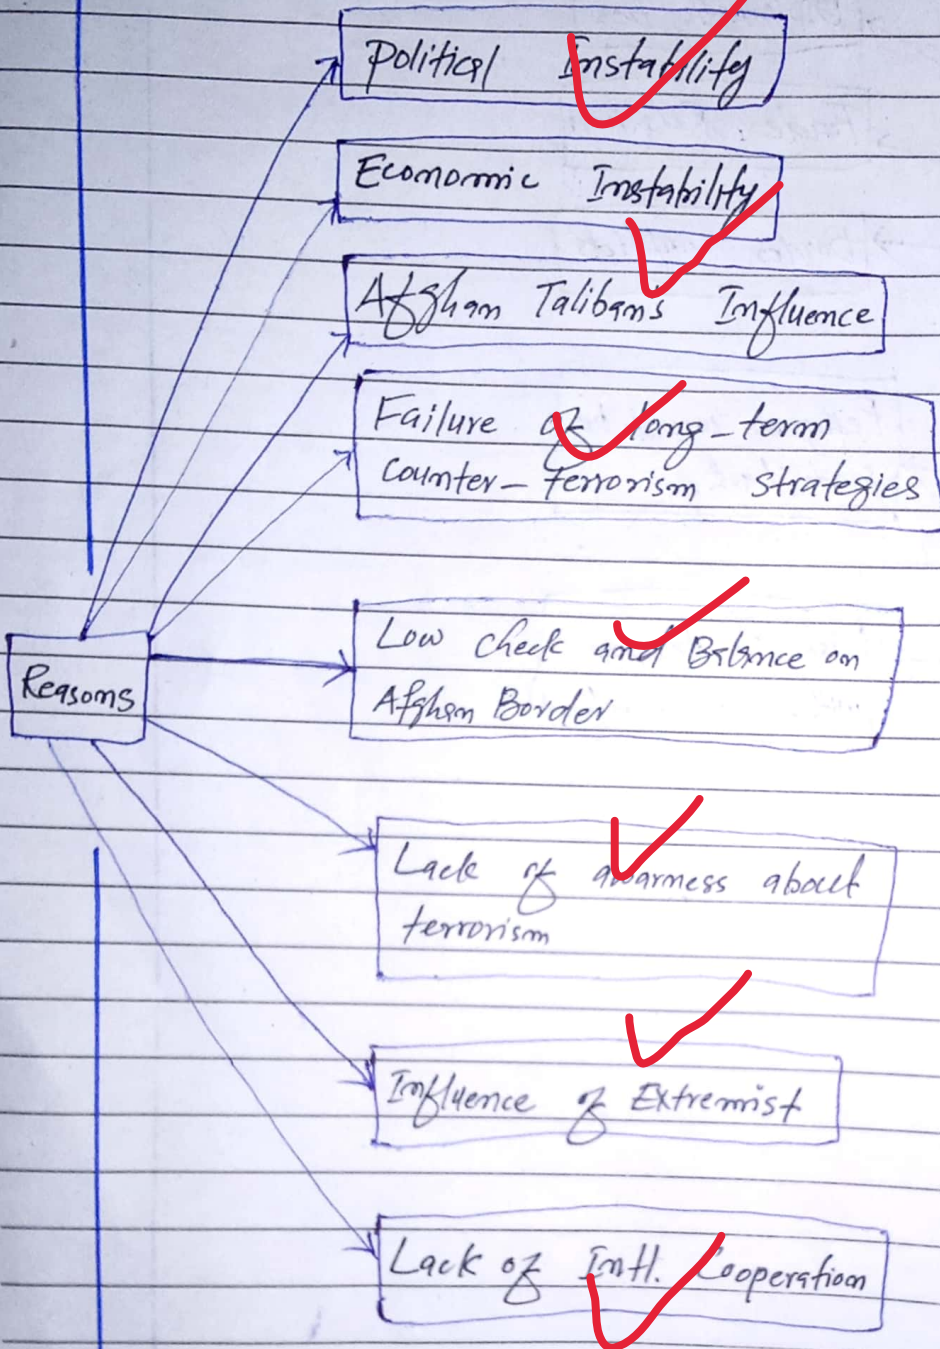 Political Instability
Economic Instability
Afghan Talibans Influence
Failure of long-term
Counter-terrorism strategies
Reasons
Low check and Balance on
Afghan Border
Lack of awarness about
terrorism
Influence of Extremist
Lack of Intl. Cooperation